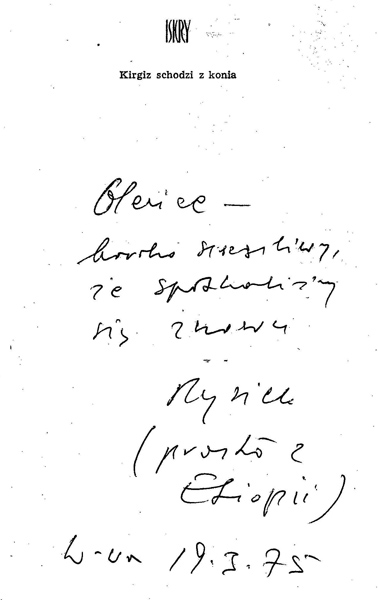 ISKRY
Kirgiz schodzi z konia
Olenice —
bardzo szczęśliwy,
że spotkaliśmy
się znowu
Rysiek
(prosto z
Etiopii)
W-wa 19.3.75